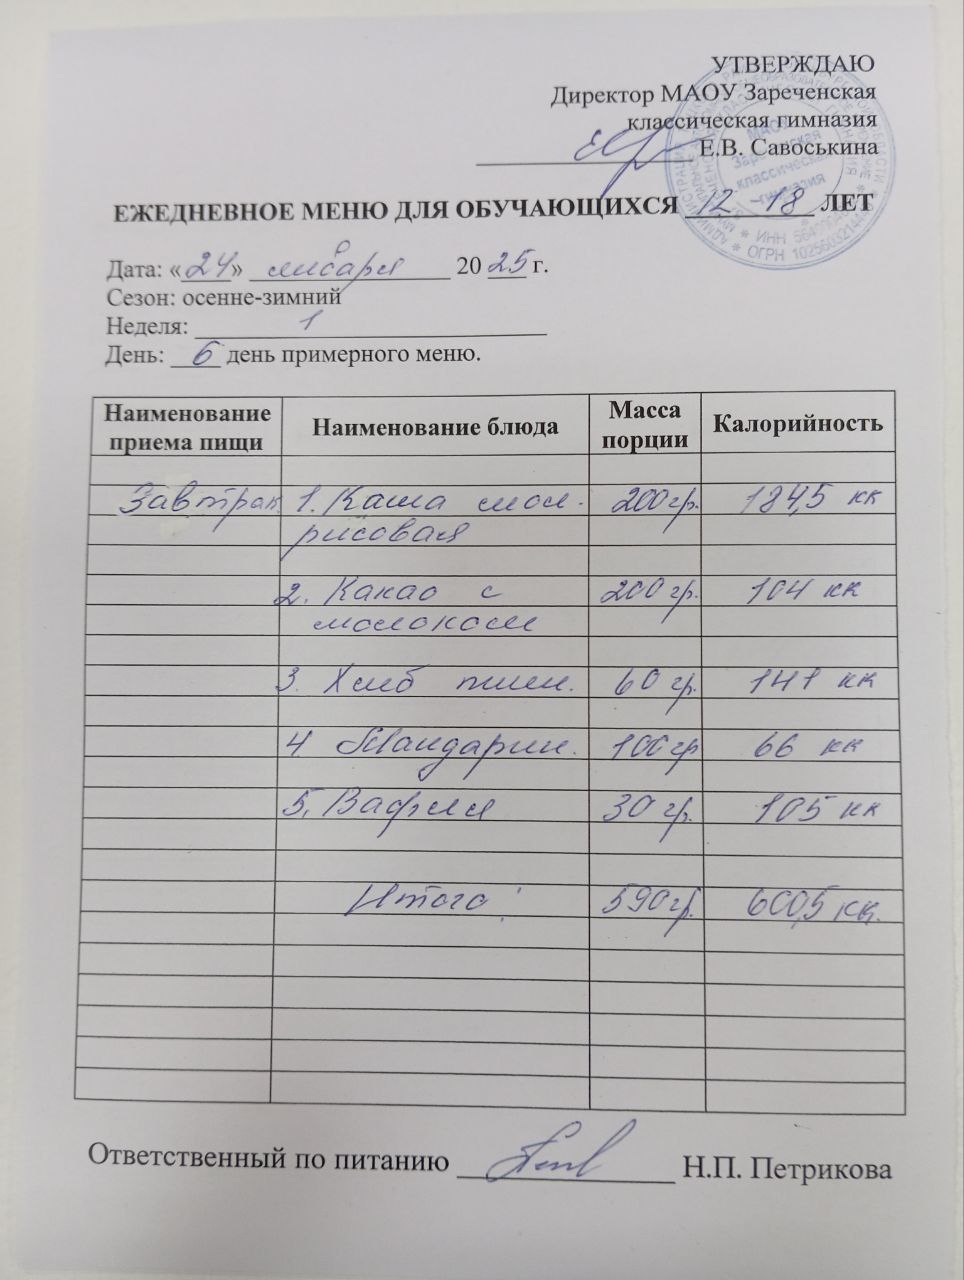 УТВЕРЖДАЮ
Директор МАОУ Зареченская
классическая гимназия
Е.В. Савоськина
МАОУ
Зареченская
классическая
гимназия
ЕЖЕДНЕВНОЕ МЕНЮ ДЛЯ ОБУЧАЮЩИХСЯ 12 18 ЛЕТ
Дата: «24» января 2025 г.
Сезон: осенне-зимний
Неделя: 1
День: 6 день примерного меню.
Наименование приема пищи Наименование блюда Масса порции Калорийность
Завтрак 1. Каша мол. 200гр. 184,5 кк
рисовая
2. Какао с 200 гр. 104 кк
молоком
3. Хлеб пшен. 60 гр. 141 кк
4. Мандарин. 100гр 66 кк
5. Вафля 30 гр. 105 кк
Итого: 590гр. 600,5 кк.
Ответственный по питанию Н.П. Петрикова